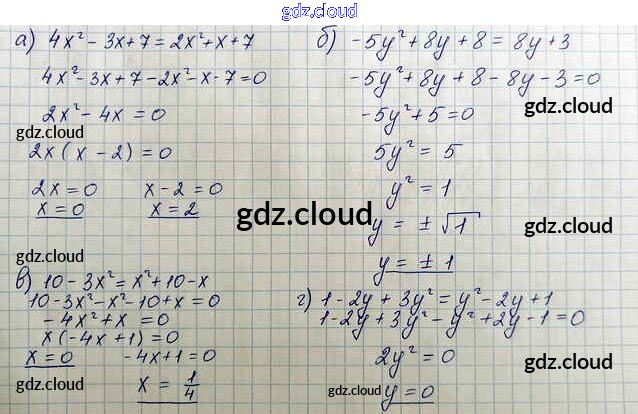 gdz.cloud
а) 4x² - 3x + 7 = 2x² + x + 7
4x² - 3x + 7 - 2x² - x - 7 = 0
2x² - 4x = 0
gdz.cloud
2x(x - 2) = 0
2x = 0 x - 2 = 0
x = 0 x = 2
gdz.cloud
б) -5y² + 8y + 8 = 8y + 3
-5y² + 8y + 8 - 8y - 3 = 0
gdz.cloud
-5y² + 5 = 0
5y² = 5
y² = 1
y = ± √1
gdz.cloud
y = ± 1
в) 10 - 3x² = x² + 10 - x
10 - 3x² - x² - 10 + x = 0
-4x² + x = 0
x(-4x + 1) = 0
x = 0 -4x + 1 = 0
gdz.cloud
x = 1/4
г) 1 - 2y + 3y² = y² - 2y + 1
1 - 2y + 3y² - y² + 2y - 1 = 0
2y² = 0
gdz.cloud
y = 0
gdz.cloud